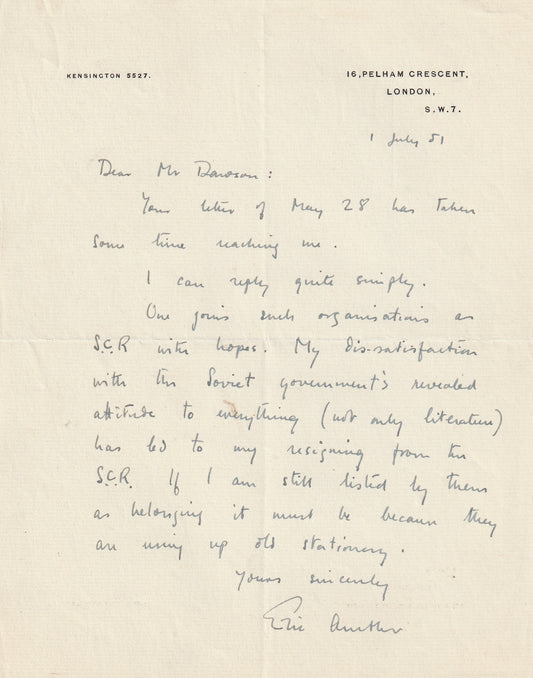 KENSINGTON 5527.
16, PELHAM CRESCENT,
LONDON,
S.W.7.
1 July 51
Dear Mr Dawson:
Your letter of May 28 has taken
some time reaching me.
I can reply quite simply.
One joins such organisations as
S.C.R with hopes. My dis-satisfaction
with the Soviet government's revealed
attitude to everything (not only literature)
has led to my resigning from the
S.C.R. If I am still listed by them
as belonging it must be because they
are using up old stationery.
Yours sincerely
Eric Ambler